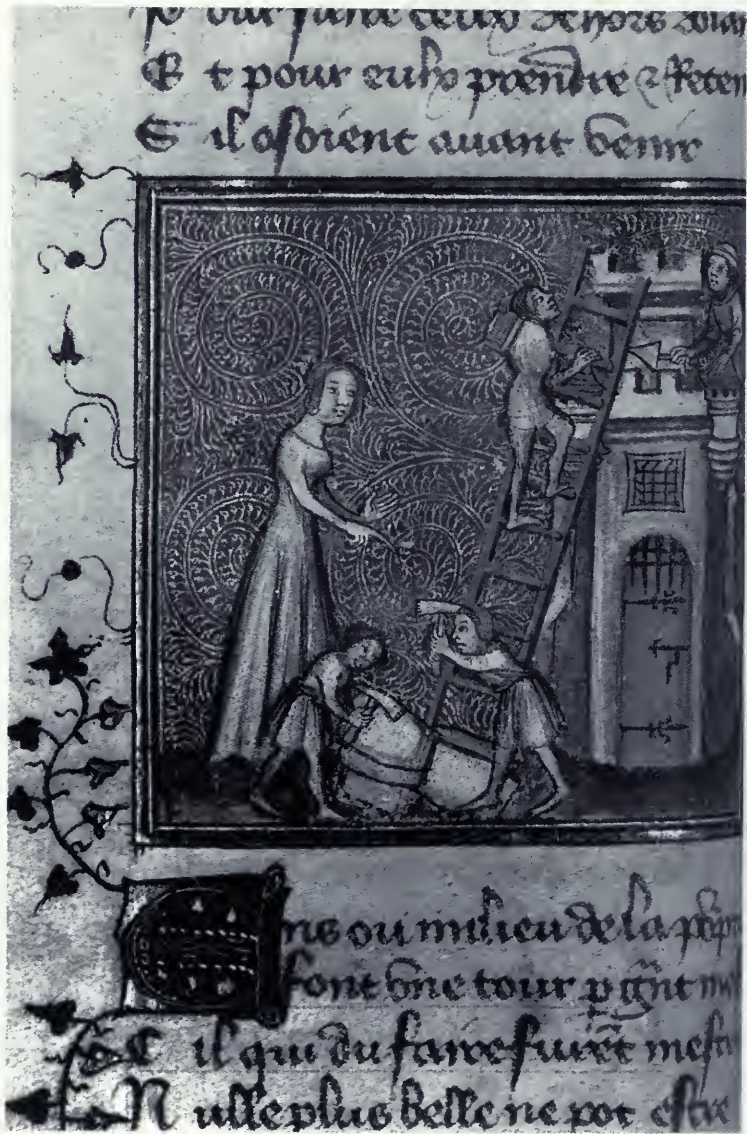 E t pour eulx prendre & Reten
S il osoient auant venir
Ens ou milieu de la
font vne tour p grant
C il qui du faire furent mest
N ulle plus belle ne pot estre